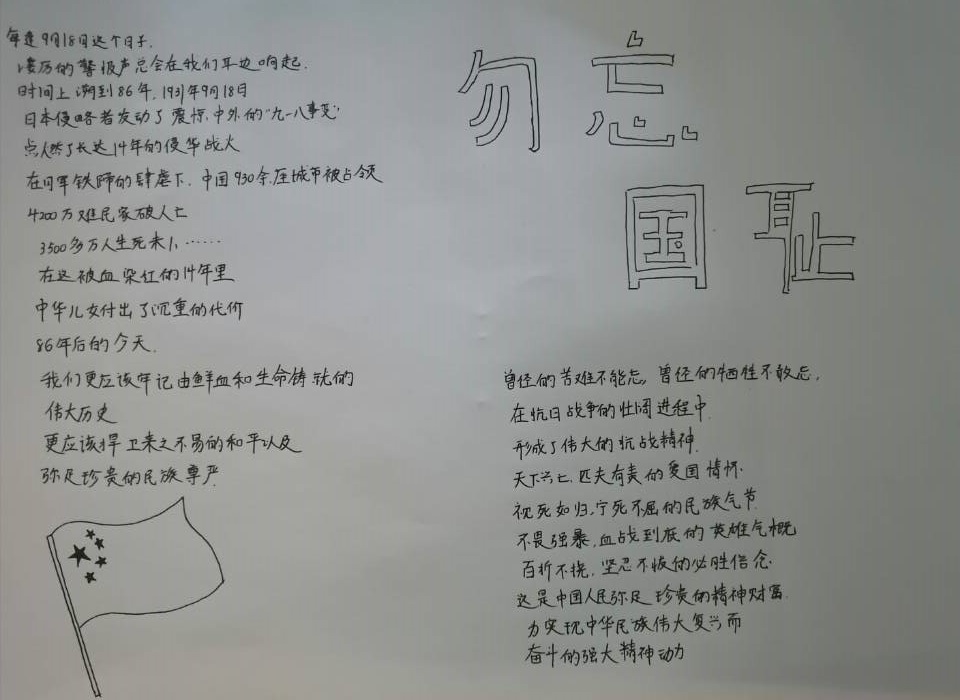 每逢9月18日这个日子.
凄厉的警报声总会在我们耳边响起.
时间上溯到86年, 1931年9月18日
日本侵略者发动了震惊中外的"九一八事变"
点燃了长达14年的侵华战火
在日军铁蹄的肆虐下. 中国930余座城市被占领
4200万难民家破人亡
3500多万人生死未卜……
在这被血染红的14年里
中华儿女付出了沉重的代价
86年后的今天.
我们更应该牢记由鲜血和生命铸就的
伟大历史
更应该捍卫来之不易的和平以及
弥足珍贵的民族尊严
勿忘
国耻
曾经的苦难不能忘, 曾经的牺牲不敢忘.
在抗日战争的壮阔进程中
形成了伟大的抗战精神
天下兴亡, 匹夫有责的爱国情怀.
视死如归, 宁死不屈的民族气节
不畏强暴, 血战到底的英雄气概
百折不挠, 坚忍不拔的必胜信念.
这是中国人民弥足珍贵的精神财富.
为实现中华民族伟大复兴而
奋斗的强大精神动力